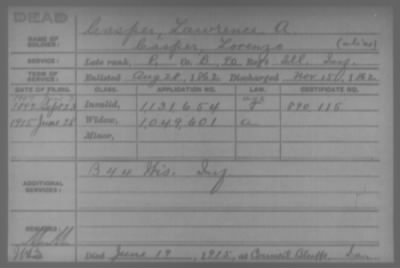 DEAD
NAME OF SOLDIER: Casper, Lawrence A.
Casper, Lorenzo (alias)
SERVICE: Late rank, P. Co. B, 80 Reg't Ill. Inf.
TERM OF SERVICE: Enlisted Aug 28, 1862 Discharged Nov 15, 1862
DATE OF FILING. CLASS. APPLICATION NO. LAW. CERTIFICATE NO.
1892 Sept 23 Invalid, 1131,654 890,115
1915 June 28 Widow, 1,049,601 a
Minor,
ADDITIONAL SERVICES: B 44 Wis. Inf
REMARKS:
Died June 19, 1915, at Council Bluffs, Iowa